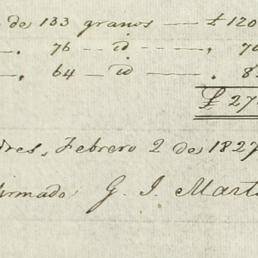 de 133 granos — £ 120
. 76 — id — . 7
. 64 — id — . 8
£ 27
dres, Febrero 2 de 1827
firmado G. J. Mart